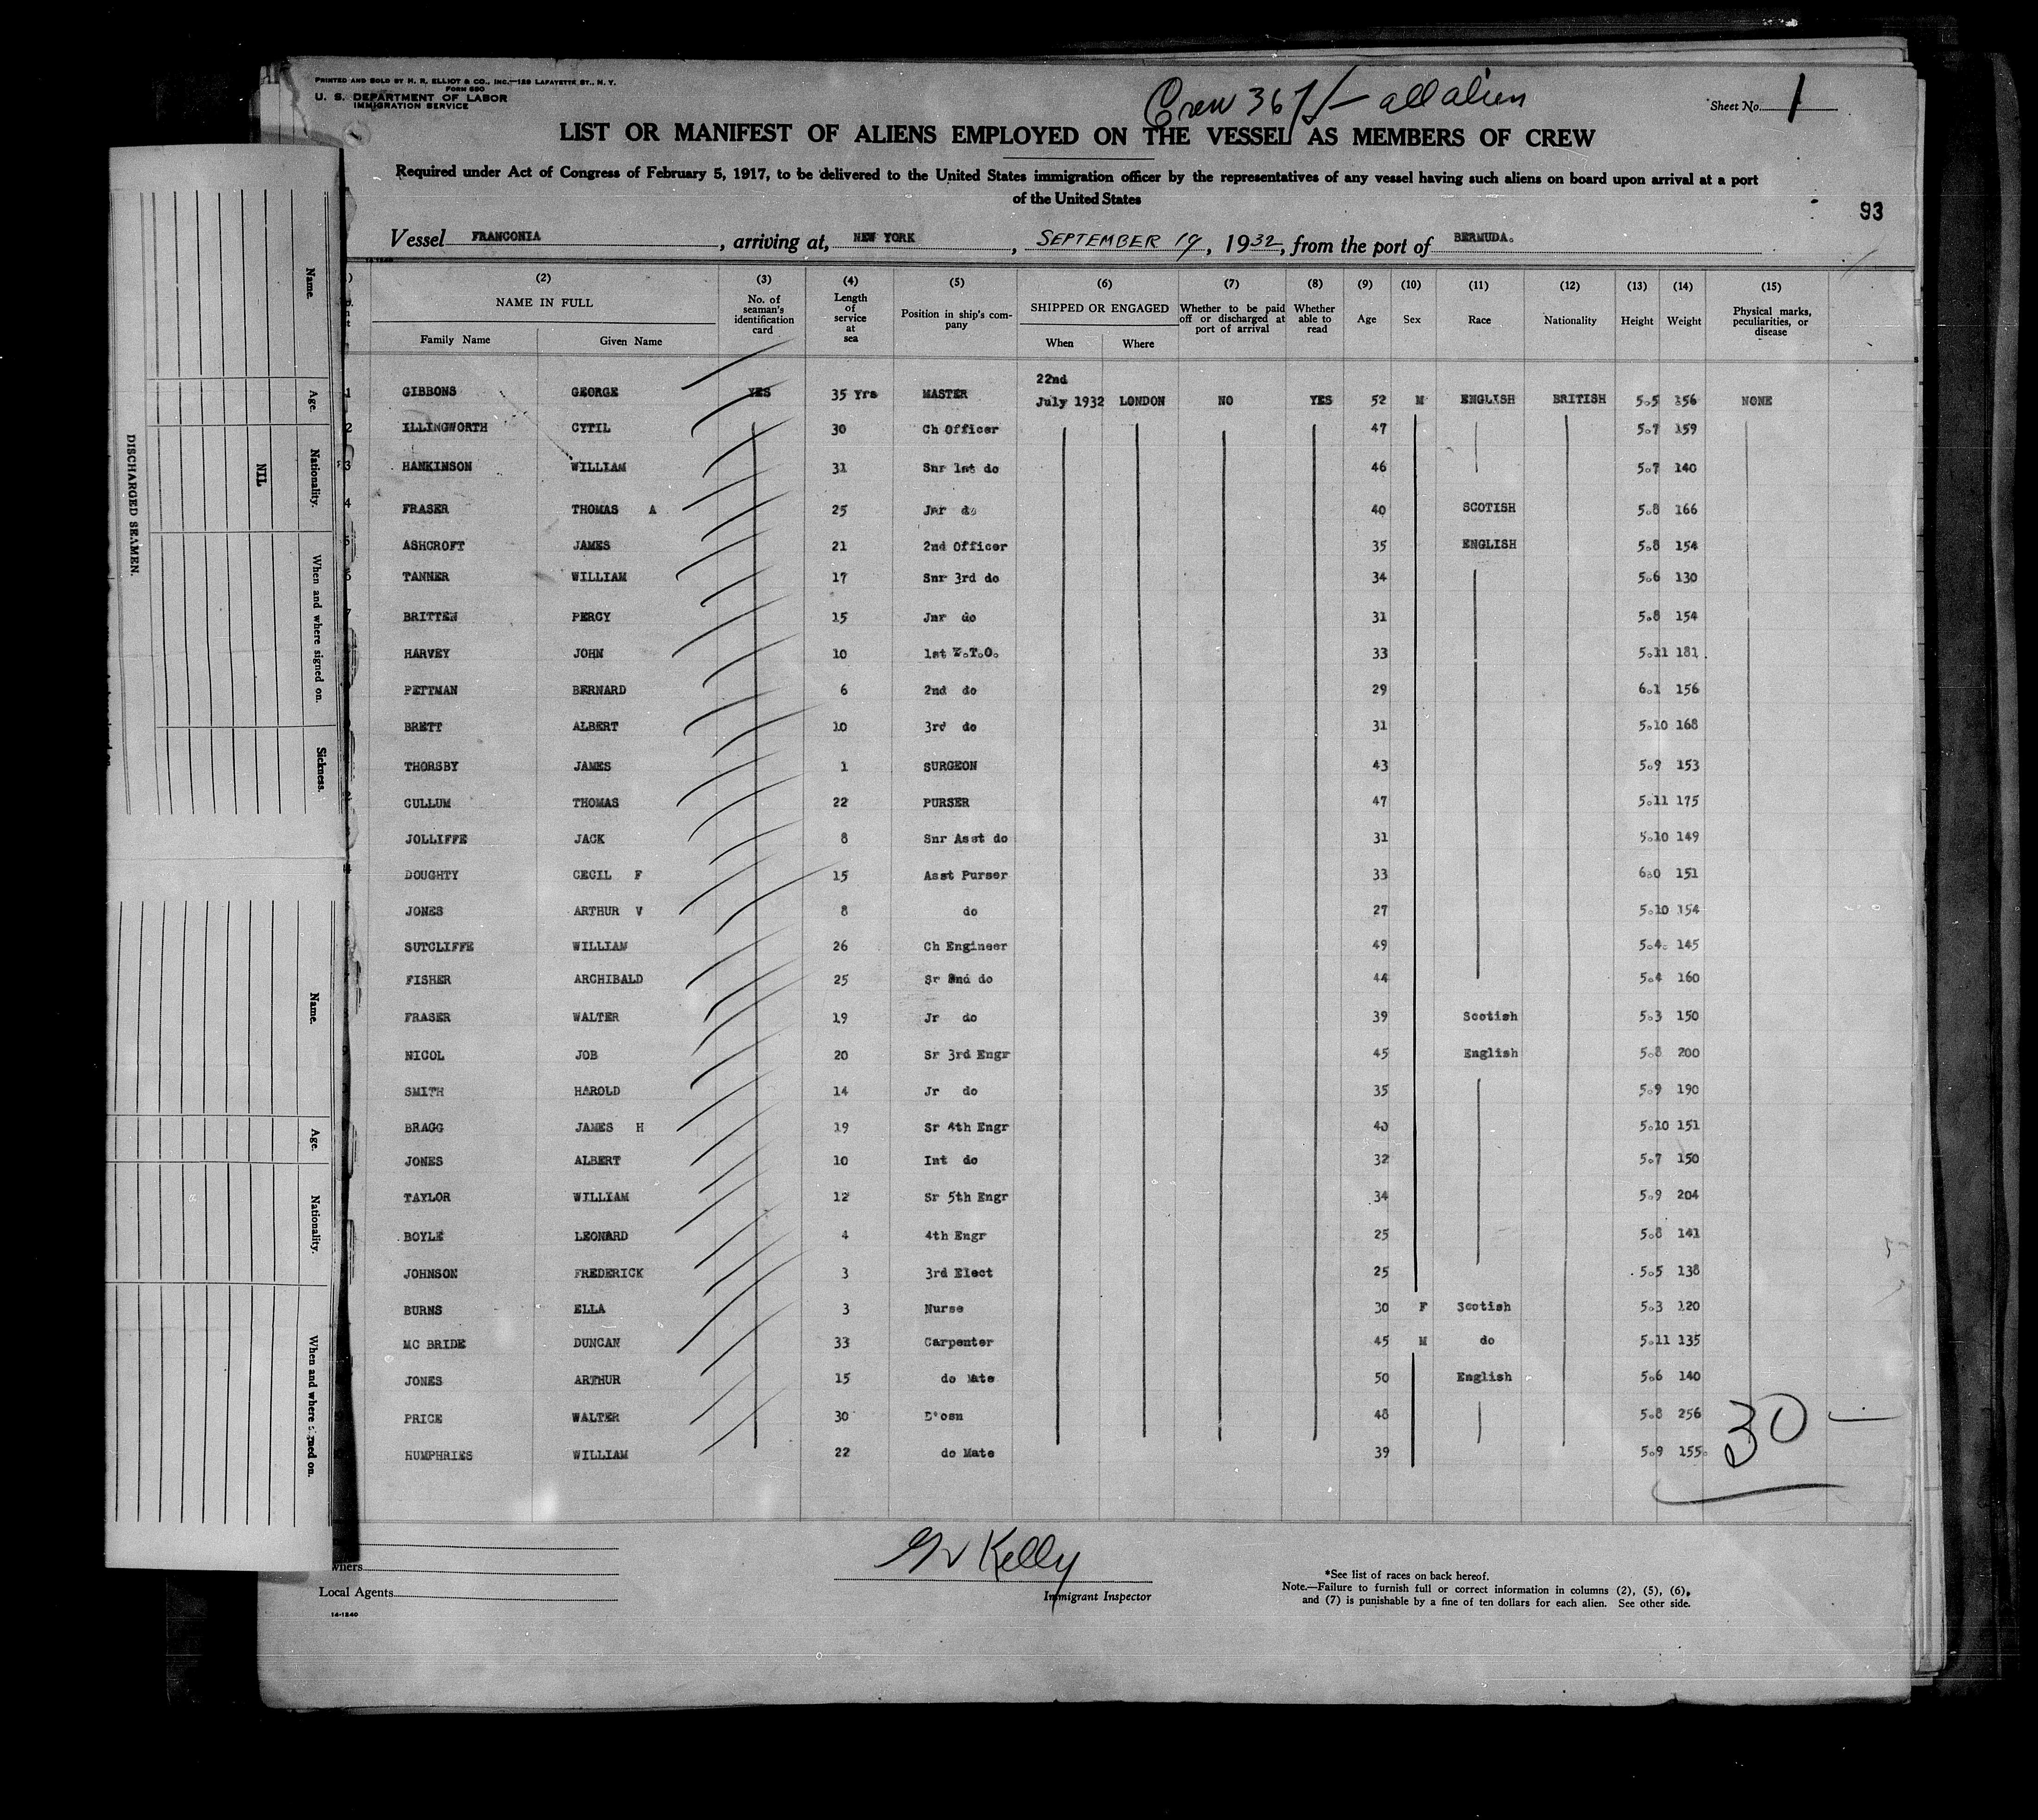 PRINTED AND SOLD BY H. R. ELLIOT & CO., INC.—129 LAFAYETTE ST., N. Y.
FORM 680
U. S. DEPARTMENT OF LABOR
IMMIGRATION SERVICE
Crew 367/- all alien
Sheet No. 1
LIST OR MANIFEST OF ALIENS EMPLOYED ON THE VESSEL AS MEMBERS OF CREW
Required under Act of Congress of February 5, 1917, to be delivered to the United States immigration officer by the representatives of any vessel having such aliens on board upon arrival at a port
of the United States
93
Vessel FRANCONIA, arriving at, NEW YORK, SEPTEMBER 19, 1932, from the port of BERMUDA.
(2) (3) (4) (5) (6) (7) (8) (9) (10) (11) (12) (13) (14) (15)
NAME IN FULL No. of seaman's identification card Length of service at sea Position in ship's company SHIPPED OR ENGAGED Whether to be paid off or discharged at port of arrival Whether able to read Age Sex Race Nationality Height Weight Physical marks, peculiarities, or disease
Family Name Given Name When Where
22nd
1 GIBBONS GEORGE YES 35 Yrs MASTER July 1932 LONDON NO YES 52 M ENGLISH BRITISH 5.5 156 NONE
2 ILLINGWORTH CYTIL 30 Ch Officer 47 5.7 159
3 HANKINSON WILLIAM 31 Snr 1st do 46 5.7 140
4 FRASER THOMAS A 25 Jnr do 40 SCOTISH 5.8 166
5 ASHCROFT JAMES 21 2nd Officer 35 ENGLISH 5.8 154
TANNER WILLIAM 17 Snr 3rd do 34 5.6 130
BRITTEN PERCY 15 Jnr do 31 5.8 154
HARVEY JOHN 10 1st W.T.O. 33 5.11 181
PETTMAN BERNARD 6 2nd do 29 6.1 156
BRETT ALBERT 10 3rd do 31 5.10 168
THORSBY JAMES 1 SURGEON 43 5.9 153
CULLUM THOMAS 22 PURSER 47 5.11 175
JOLLIFFE JACK 8 Snr Asst do 31 5.10 149
DOUGHTY CECIL F 15 Asst Purser 33 6.0 151
JONES ARTHUR V 8 do 27 5.10 154
SUTCLIFFE WILLIAM 26 Ch Engineer 49 5.4. 145
FISHER ARCHIBALD 25 Sr 2nd do 44 5.4 160
FRASER WALTER 19 Jr do 39 Scotish 5.3 150
NICOL JOB 20 Sr 3rd Engr 45 English 5.8 200
SMITH HAROLD 14 Jr do 35 5.9 190
BRAGG JAMES H 19 Sr 4th Engr 40 5.10 151
JONES ALBERT 10 Int do 32 5.7 150
TAYLOR WILLIAM 12 Sr 5th Engr 34 5.9 204
BOYLE LEONARD 4 4th Engr 25 5.8 141
JOHNSON FREDERICK 3 3rd Elect 25 5.5 138
BURNS ELLA 3 Nurse 30 F Scotish 5.3 120
MC BRIDE DUNCAN 33 Carpenter 45 M do 5.11 135
JONES ARTHUR 15 do Mate 50 English 5.6 140
PRICE WALTER 30 B'osn 48 5.8 256
HUMPHRIES WILLIAM 22 do Mate 39 5.9 155.
30 —
Kelly
Immigrant Inspector
Local Agents
14-1240
*See list of races on back hereof.
Note.—Failure to furnish full or correct information in columns (2), (5), (6),
and (7) is punishable by a fine of ten dollars for each alien. See other side.
DISCHARGED SEAMEN.
Name. Age. Nationality. When and where signed on. Sickness.
NIL
Name. Age. Nationality. When and where signed on.